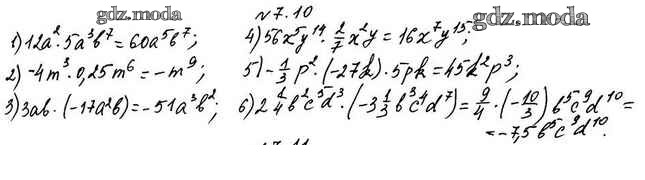 gdz.moda.org
№7.10
gdz.moda.org
1) 12a² · 5a³b⁷ = 60a⁵b⁷;
2) -4m³ · 0,25m⁶ = -m⁹;
3) 3ab · (-17a²b) = -51a³b²;
4) 56x⁵y¹⁴ · 2/7 x²y = 16x⁷y¹⁵;
5) -1/3 p² · (-27k) · 5pk = 45k²p³;
6) 2 1/4 b²c⁵d³ · (-3 1/3 b³c⁴d⁷) = 9/4 · (-10/3) b⁵c⁹d¹⁰ =
= -7,5b⁵c⁹d¹⁰.